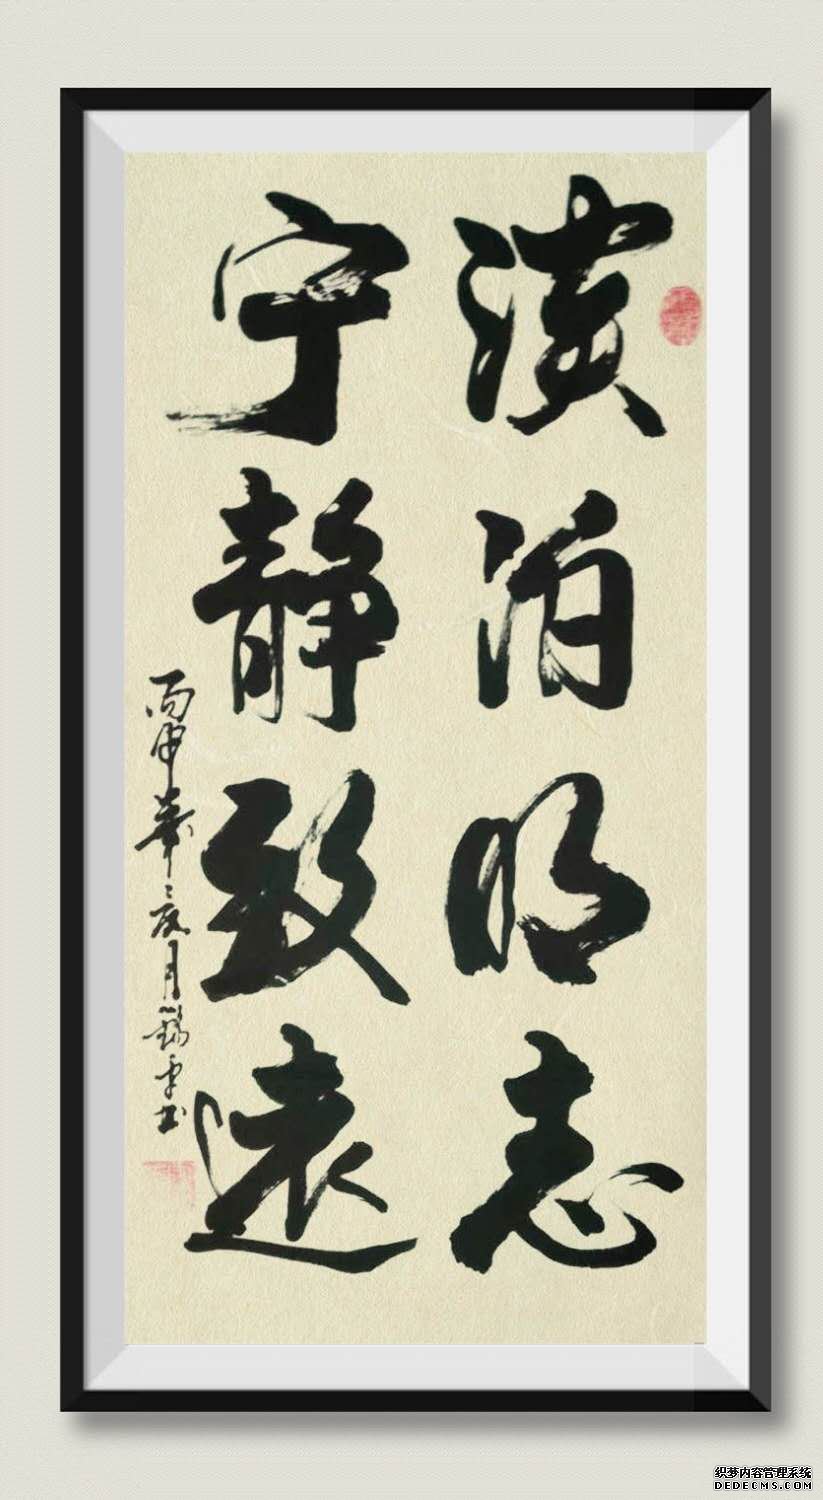 淡泊明志
宁静致遠
丙申 月 书
织梦内容管理系统
DEDECMS.COM